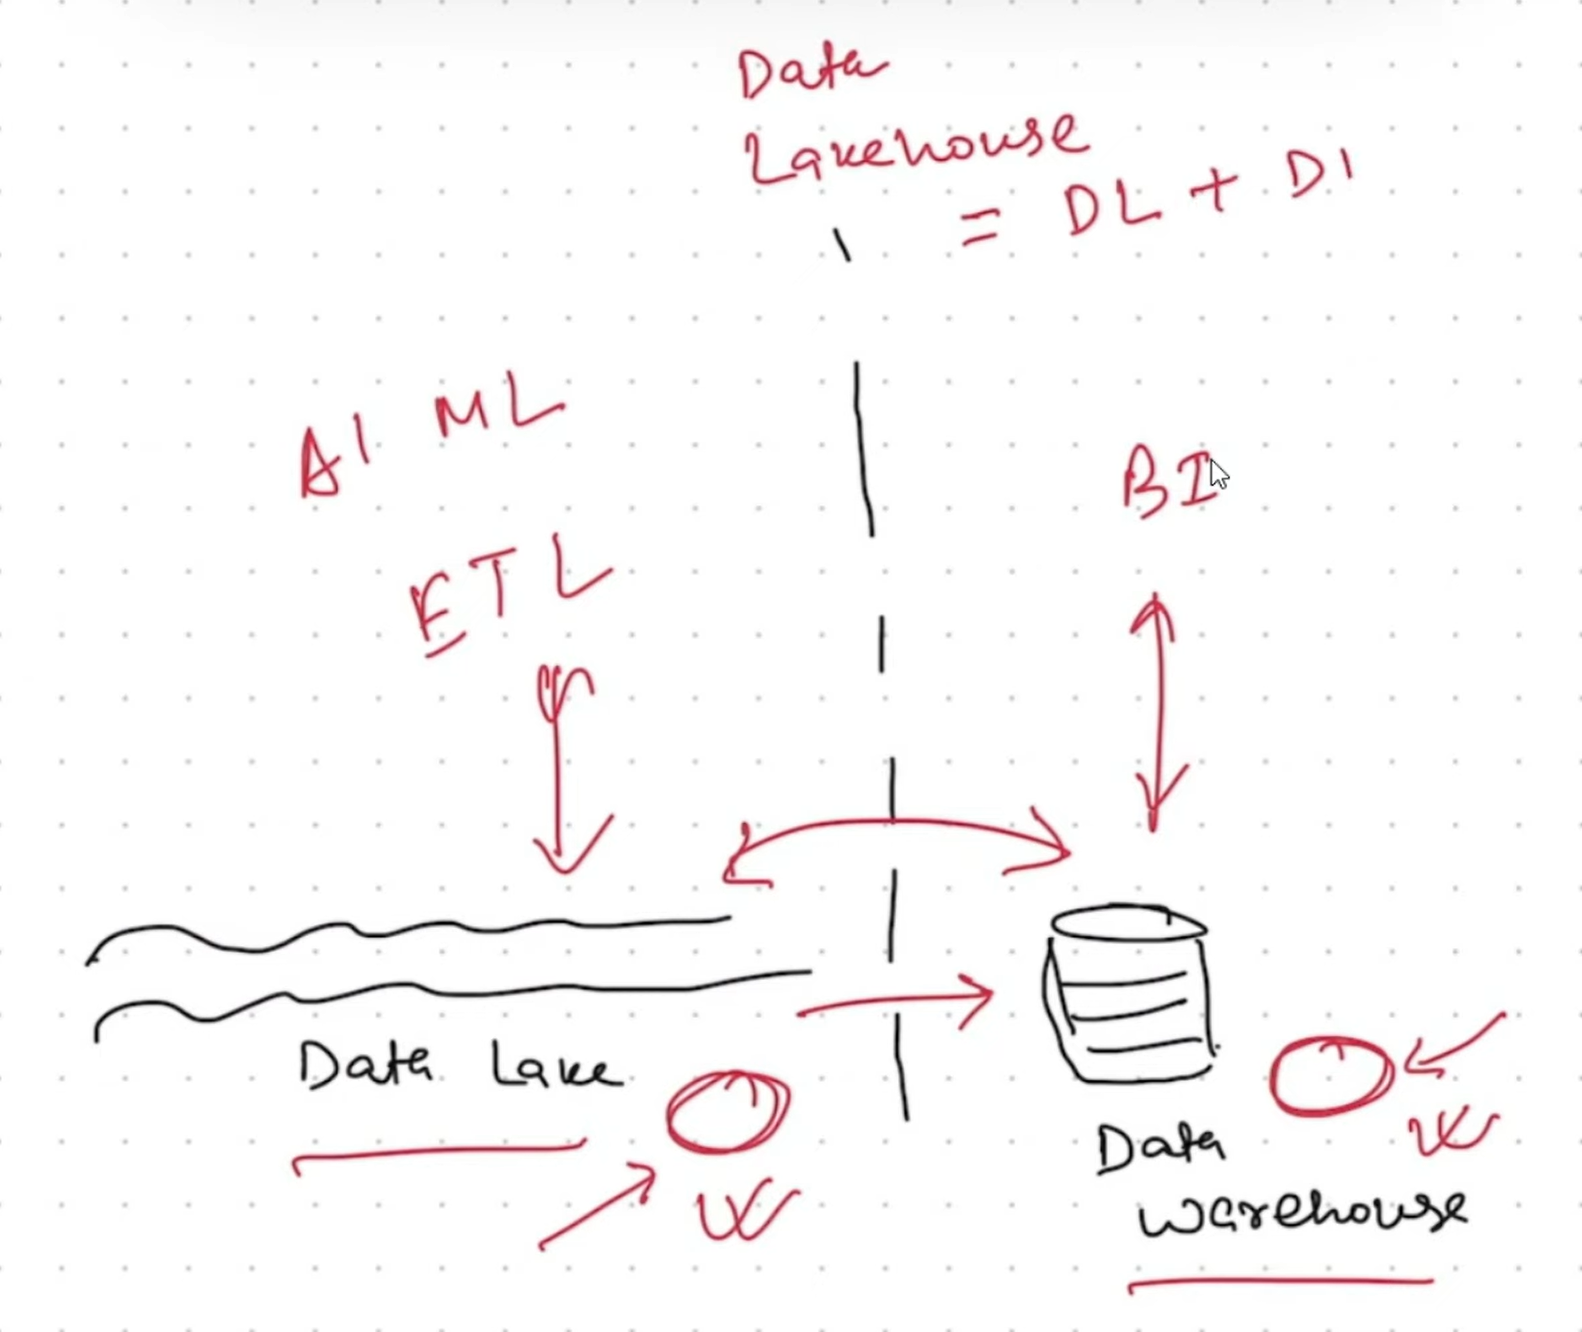 Data
Lakehouse
= DL + DI
AI ML
BI
ETL
Data Lake
Data
warehouse
W